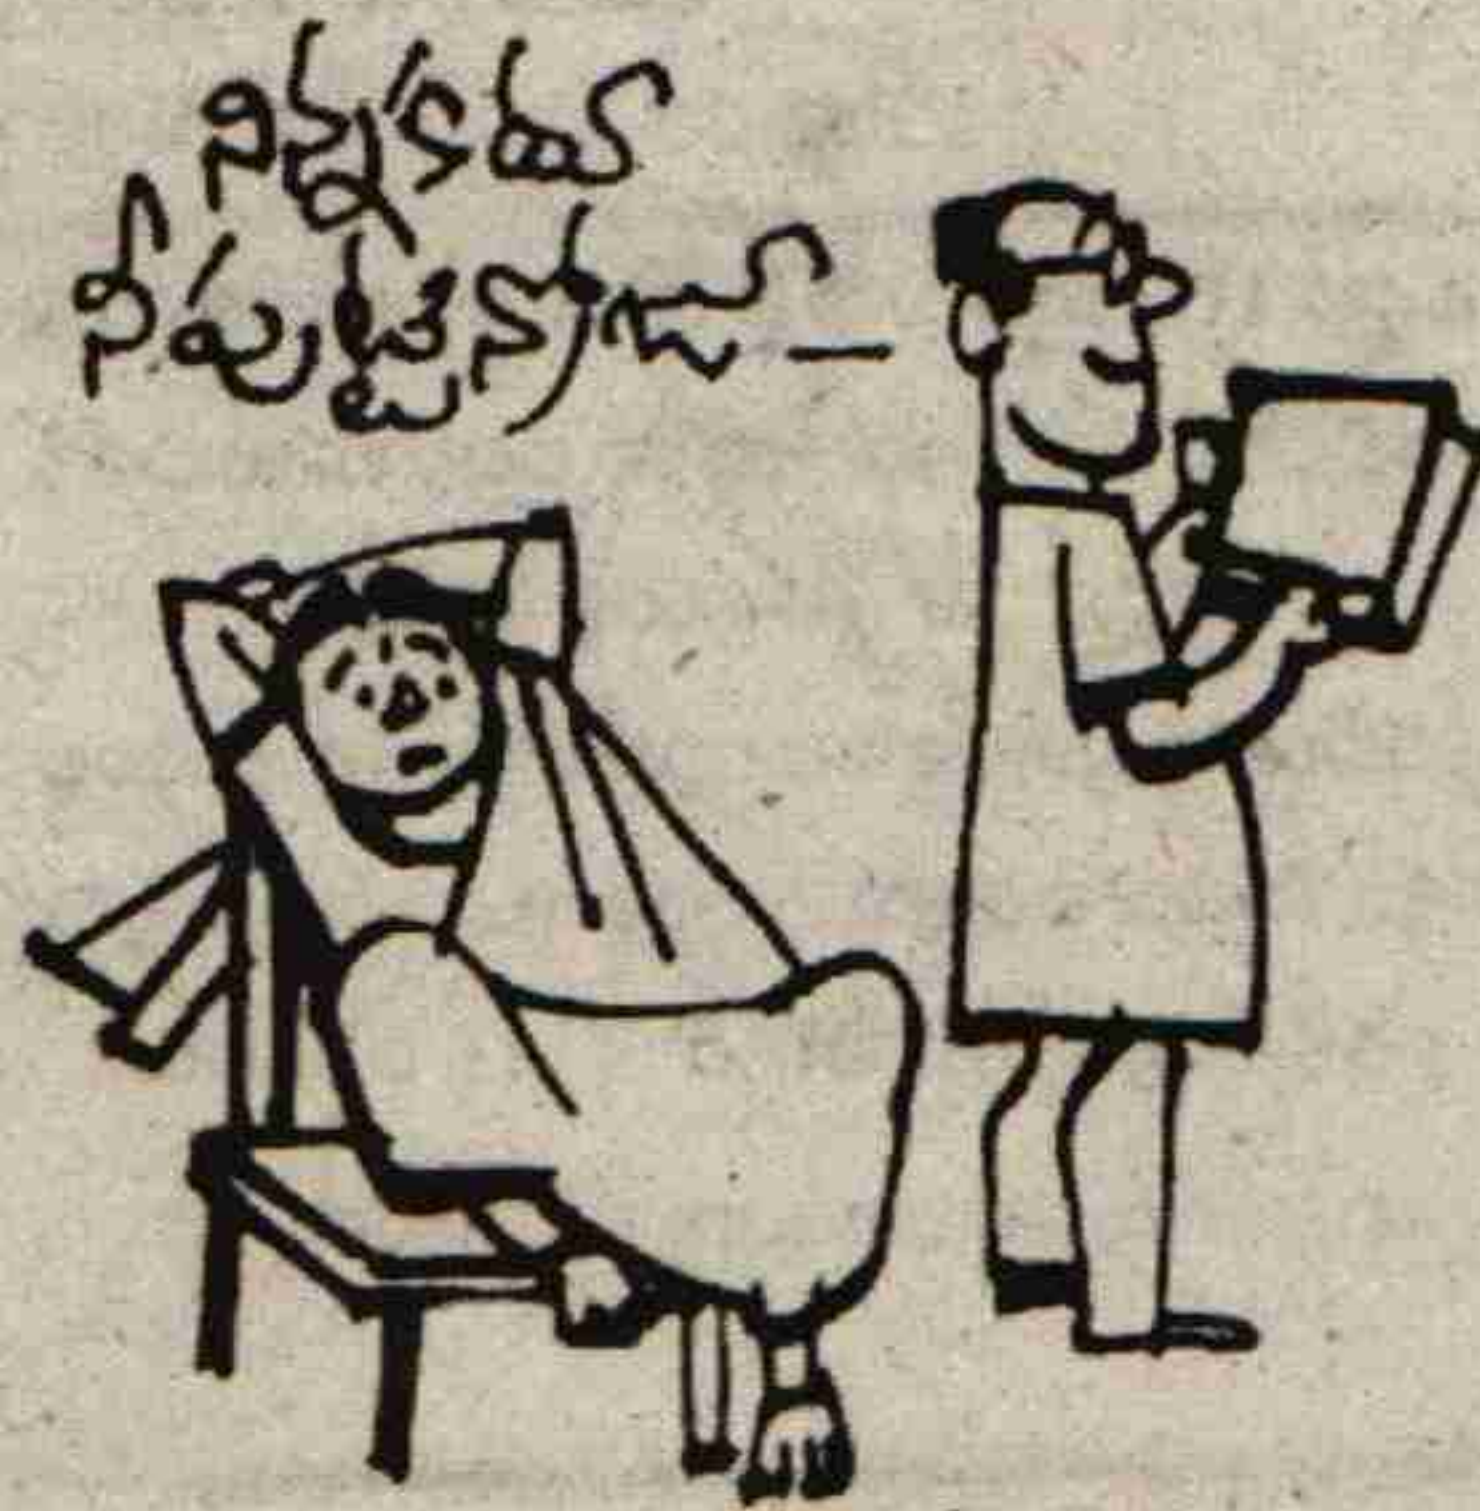 నిన్నకదూ
నీపుట్టిన్రోజూ –